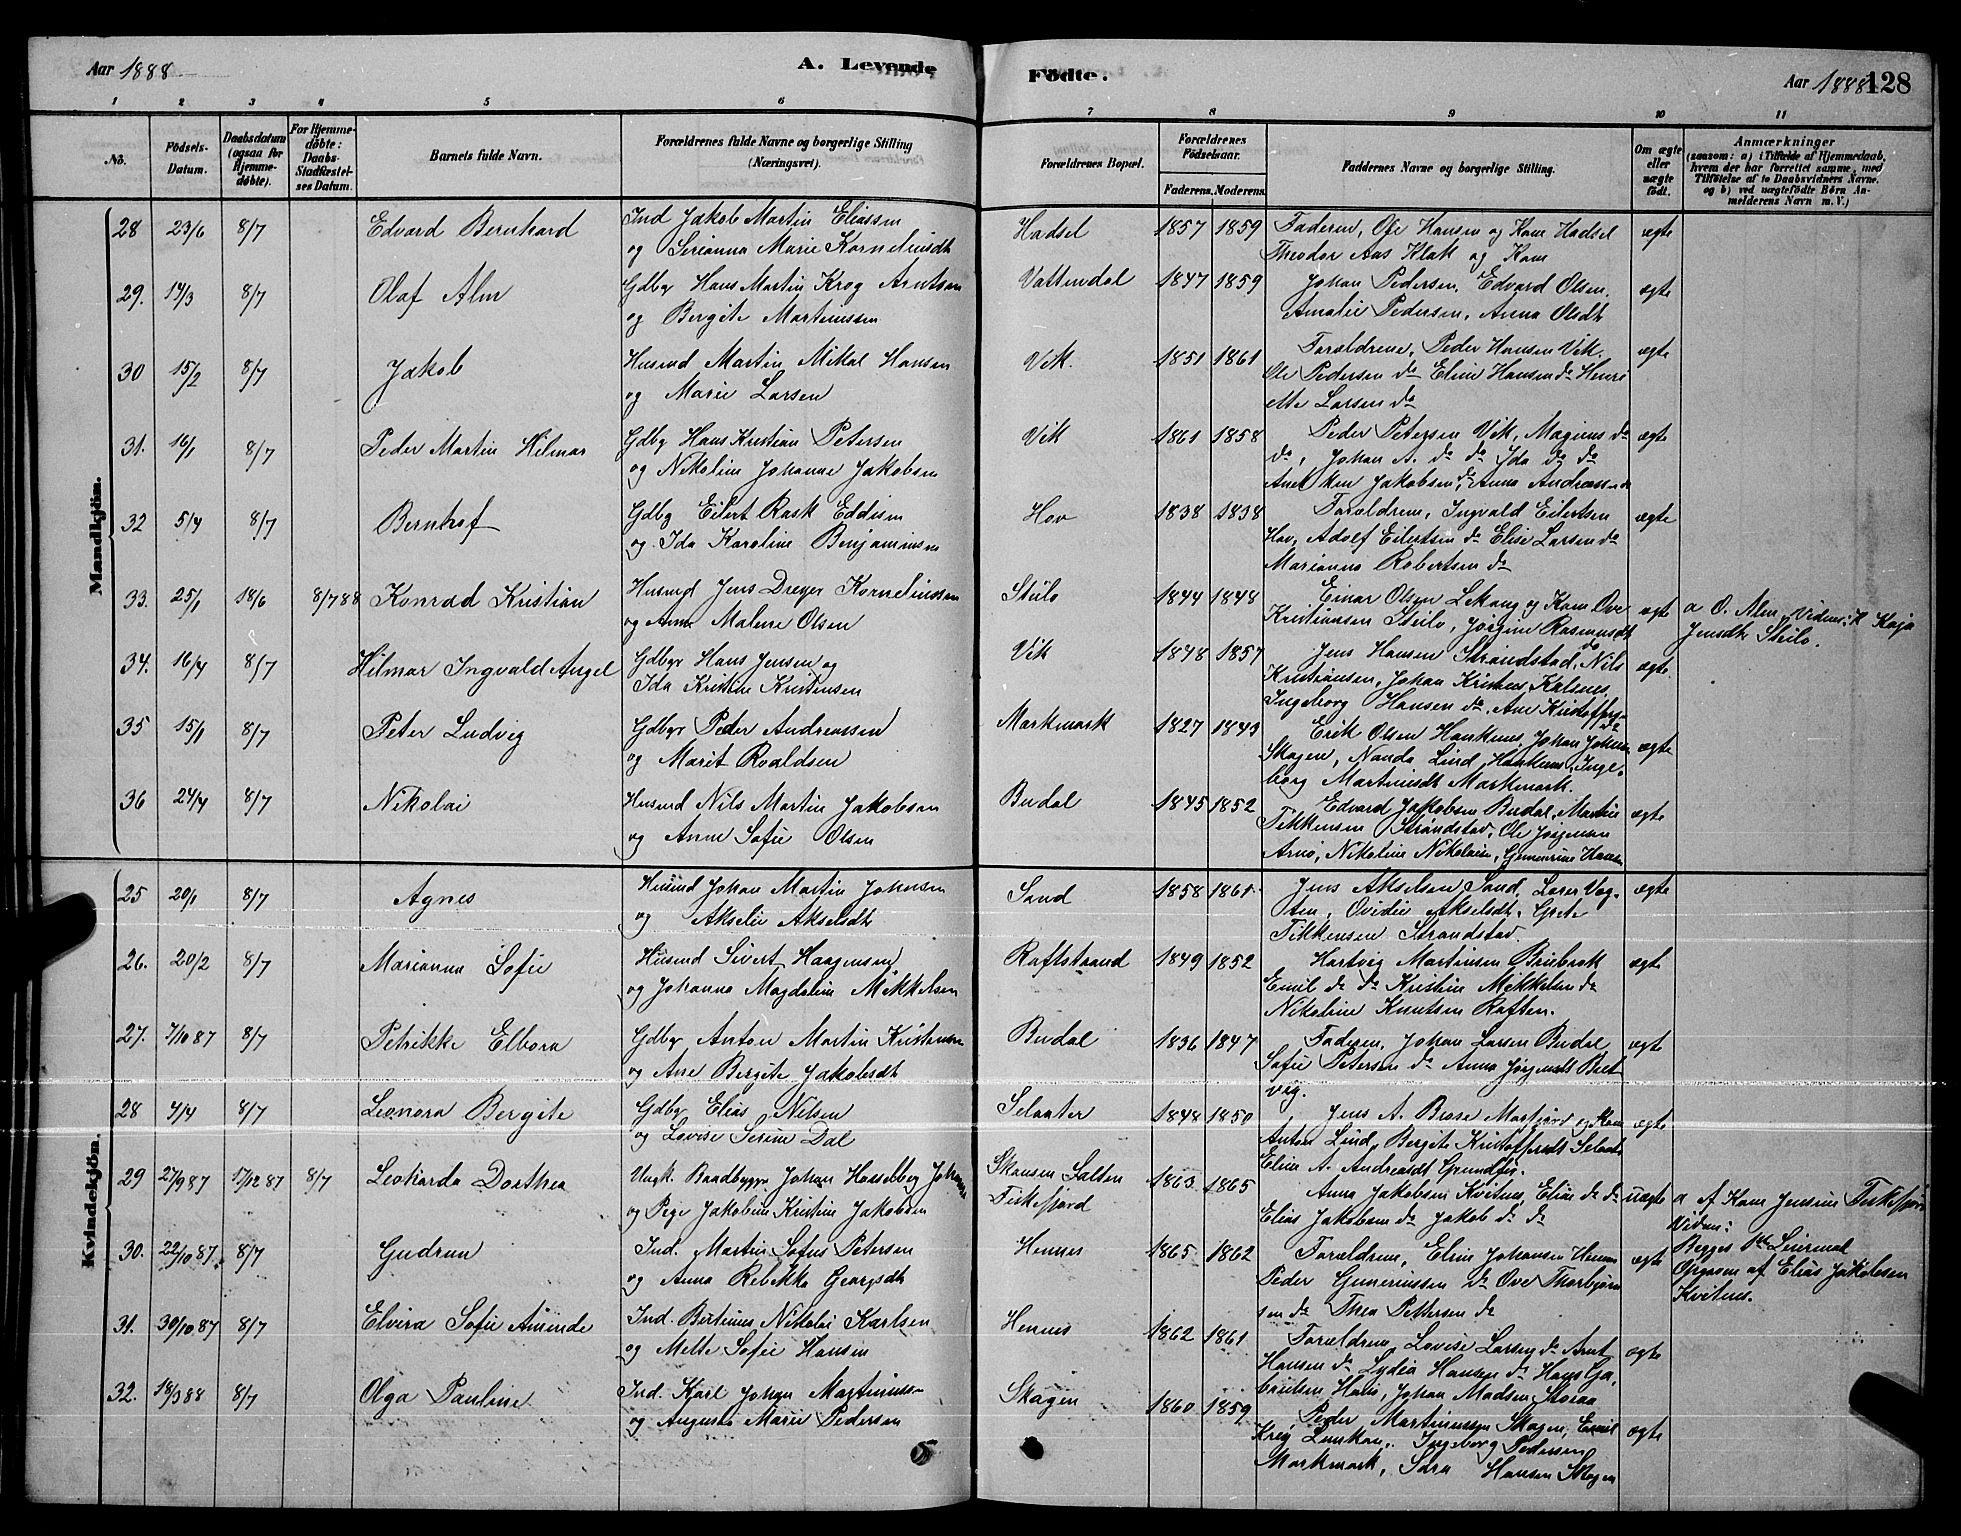 Aar 1888
A. Levende
Födte.
Aar 1888
128
1 2 3 4 5 6 7 8 9 10 11
No.
Födsels-Datum.
Daabsdatum (ogsaa for Hjemme-döbte).
For Hjemme-döbte: Daabs-Stadfæstel-ses Datum.
Barnets fulde Navn.
Forældrenes fulde Navne og borgerlige Stilling (Næringsvei).
Forældrenes Bopæl.
Forældrenes Födselsaar.
Faderens. Moderens.
Faddernes Navne og borgerlige Stilling.
Om ægte eller uægte födt.
Anmærkninger
(saasom: a) i Tilfælde af Hjemmedaab, hvem der har forrettet samme, med Tilföielse af to Daabsvidners Navne, og b) ved uægtefödte Börn An-melderens Navn m. V.)
Mandkjön.
28 23/6 8/7 Edvard Bernhard Ind Jakob Martin Eliassen Hadsel 1857 1859 Faderen, Ole Hansen og Kone Hadsel ægte
og Serianna Marie Korneliusdt Theodor Aas Klak og Kone
29. 14/3 8/7 Olaf Alm Gdbgr Hans Martin Krog Arntsen Vattendal 1847 1859 Johan Pedersen, Edvard Olsen, ægte
og Bergite Martinussen Amalie Pedersen, Anna Olsdt
30 15/2 8/7 Jakob Husmd Martin Mikal Hansen Vik. 1851 1861 Forældrene, Peder Hansen Vik. ægte
og Marie Larsen Ole Pedersen do Eline Hansen do Henri
ette Larsen do
31. 16/1 8/7 Peder Martin Hilmar Gdbg Hans Kristian Petersen Vik 1861 1858 Peder Petersen Vik, Magnus do ægte
og Nikoline Johanne Jakobsen do, Johan A. do do Ida do do
Jakobsen do, Anna Andreassen do
32 5/4 8/7 Bernhof Gdbg Eilert Rask Eddisen Hov 1838 1838 Forældrene, Ingvald Eilertsen ægte
og Ida Karoline Benjaminsen Hov, Adolf Eilertsen do Elise Larsen do
Marianna Robertsen do
33. 25/1 18/6 8/7 88 Konrad Kristian Husmd Jens Dreyer Korneliussen Steilo 1844 1848 Einar Olsen Lekang og Kone Ove ægte a O. Alm, Vidner: Kaja
og Anne Malene Olsen Kristiansen Steilo, Jørgine Rasmusdt do Jensdtr Steilo.
34. 16/4 8/7 Hilmar Ingvald Angel Gdbgr Hans Jensen og Vik 1848 1857 Jens Hansen Strandstad, Nils ægte
Ida Kristine Kristensen Kristiansen, Johan Kalsnes,
Ingeborg Hansen do, Ane
35 15/1 8/7 Peter Ludvig Gdbgr Peder Andreassen Markmark 1827 1843 Erik Olsen Johan Johnsen ægte
og Marit Roaldsen Skagen, Nanda Lind, Inge-
borg Martinusdt Markmark.
36 24/4 8/7 Nikolai Husmd Nils Martin Jakobsen Budal 1845 1852 Edvard Jakobsen Budal, Martin ægte
og Anne Sofie Olsen Tikkensen Strandstad, Ole Jørgensen
Arnø, Nikoline Nikolaisen, Hansen
Kvindekjön.
25 20/1 8/7 Agnes Husmd Johan Martin Johnsen Sand 1858 1861 Jens Akselsen Sand, Vog- ægte
og Akselie Akselsdt ten, Ovidie Akselsdt, Grete
Tikkensen Strandstad.
26. 20/2 8/7 Marianna Sofie Husmd Sivert Haagensen Raftstrand 1849 1852 Hartvig Martinsen ægte
og Johanna Magdalene Mikkelsen Emil do do Kristine Mikkelsen do
Nikoline Knutsen Raften.
27. 7/10 87 8/7 Petrikke Elbora Gdbgr Anton Martin Kristensen Budal 1836 1847 Faderen, Johan Larsen Budal ægte
og Ane Bergite Jakobsdt Sofie Petersen do Anna Jørgensdt
vig.
28 4/4 8/7 Leonora Bergite Gdbg Elias Nilsen Selaater 1848 1850 Jens A. Brose og Kone ægte
og Lovise Serine Dal Anton Lind, Bergite Kristoffersdt
Eline A. Andreasdt
29 27/9 87 17/12 87 8/7 Leonarda Dorthea Ungk. Baadbygger Johan Hasselberg Skansen Salten 1863 1865 Anna Jakobsen Kvitnes, Eline do do uægte a A. Kone Jensine Fiskefjord
og Pige Jakobine Kristine Jakobsen Fiskefjord Elias Jakobsen do Jakob do do Vidner:
30. 22/10 87 8/7 Gudrun Ind. Martin Sofus Petersen Hennes 1865 1862 Forældrene, Eline Johansen Hennes ægte Begges 1ste Leiermaal
og Anna Rebekka Georgsdt Peder Gunneriussen do Ove Thorbjørn Opgivm af Elias Jakobsen
sen do Thea Pettersen do Kvitnes.
31. 30/10 87 8/7 Elvira Sofie Aminde Ind. Bertinus Nikolai Karlsen Hennes 1862 1861 Forældrene, Lovise Larsen do Arnt ægte
og Mette Sofie Hansen Hansen do Lydia Hansen do Hans Ga-
brielsen Johan Madsen
32. 18/3 88 8/7 Olga Pauline Ind. Karl Johan Martinus- Skagen 1860 1859 Peder Martinussen Skagen, Emil ægte
og Augusta Marie Pedersen Krey Ingeborg Pedersen
Markmark, Sara Hansen Skagen